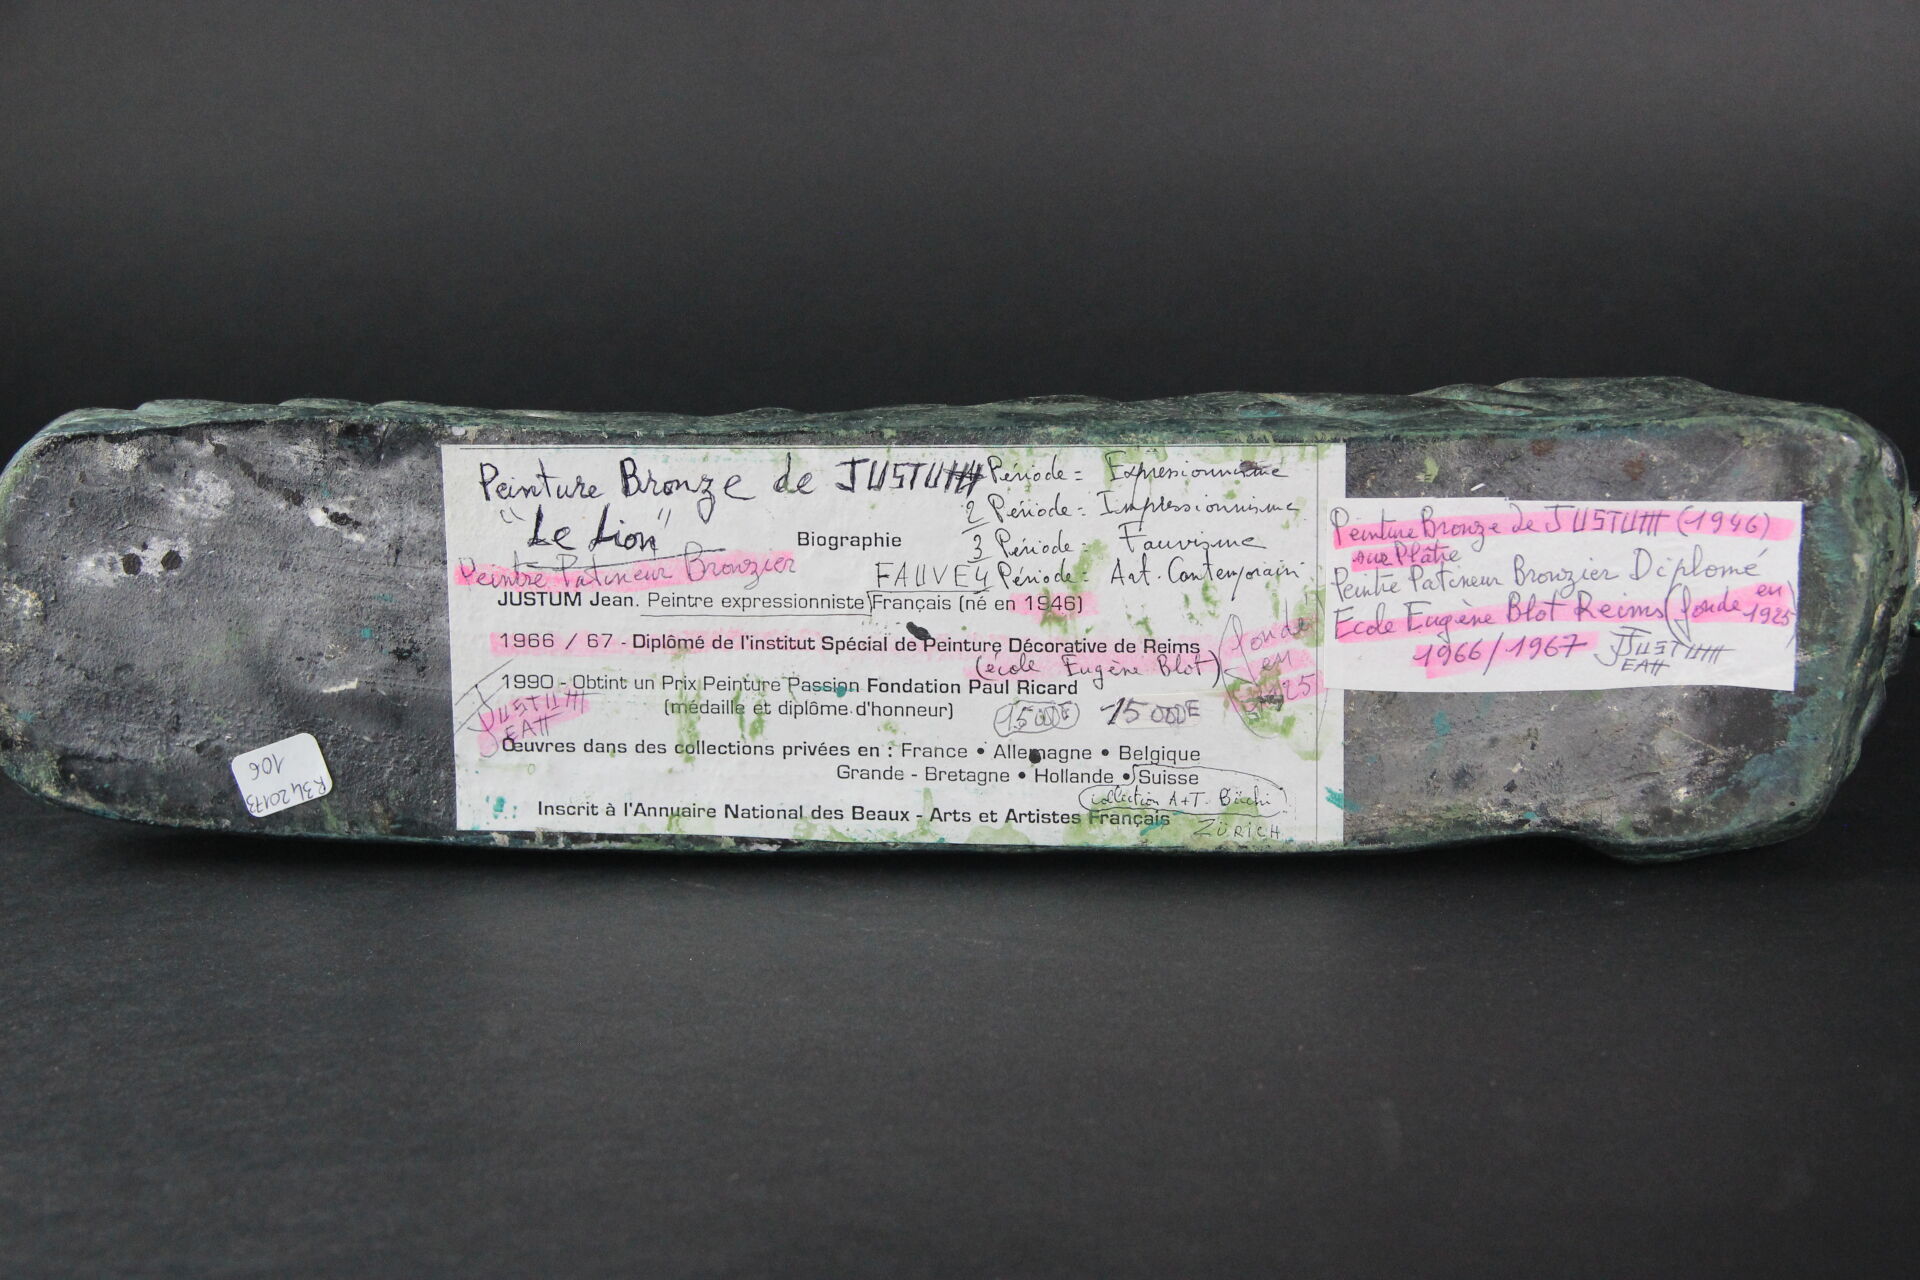 Peinture Bronze de JUSTUM
"Le Lion"
Période = Expressionnisme
2 Période = Impressionnisme
3 Période = Fauvisme
FAUVE 4 Période = Art. Contemporain
Biographie
Peintre Patineur Bronzier
JUSTUM Jean. Peintre expressionniste Français (né en 1946)
1966 / 67 - Diplômé de l'institut Spécial de Peinture Décorative de Reims
(école Eugène Blot)
fondé
en
1925
1990 - Obtint un Prix Peinture Passion Fondation Paul Ricard
(médaille et diplôme d'honneur)
15000E 15000E
JUSTUM
EAN
Œuvres dans des collections privées en : France • Allemagne • Belgique
Grande - Bretagne • Hollande • Suisse
collection A+T. Büchi
ZÜRICH
Inscrit à l'Annuaire National des Beaux - Arts et Artistes Français
Peinture Bronze de JUSTUM (1946)
sur Plâtre
Peintre Patineur Bronzier Diplomé
Ecole Eugène Blot Reims (fonde en
1925)
1966/1967 JUSTUM
EAN
R3420173
106